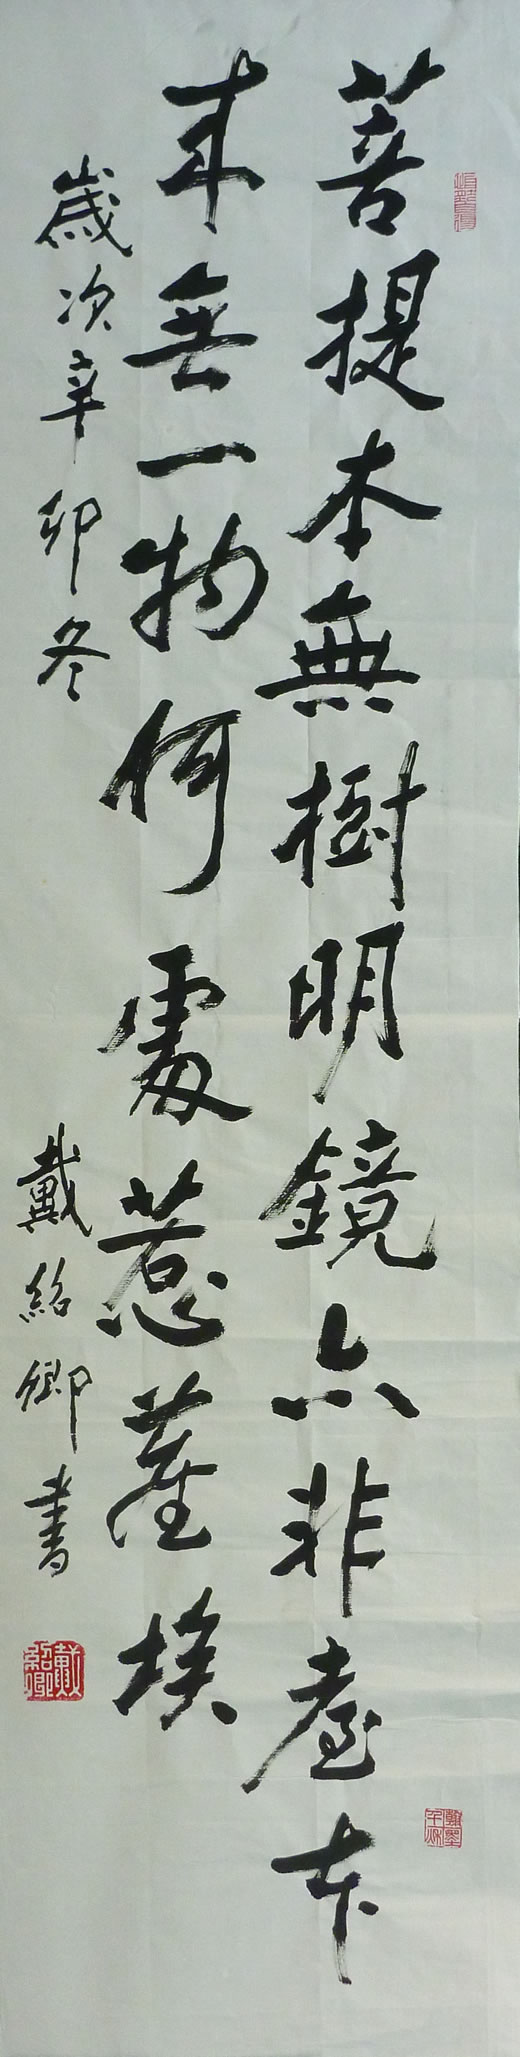 菩提本無樹明鏡亦非臺本
來無一物何處惹塵埃
歲次辛卯冬
戴紹卿書
戴紹卿
翰墨